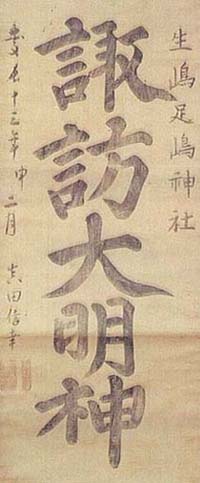 生嶋足嶋神社
諏訪大明神
慶長十三年申二月 真田信幸